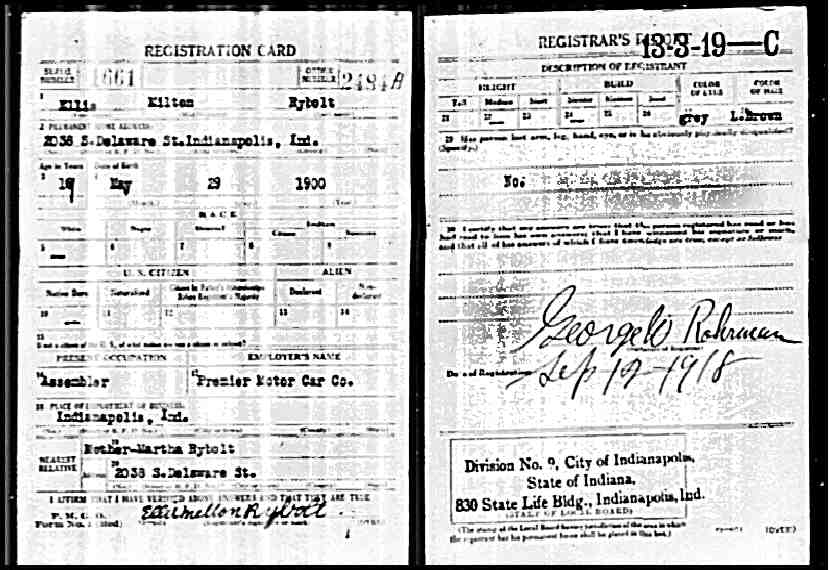 REGISTRATION CARD
SERIAL NUMBER 1661 ORDER NUMBER 2484A
1 Ellis Kilton Rybolt
2 PERMANENT HOME ADDRESS:
2038 S.Delaware St.Indianapolis, Ind.
Age in Years Date of Birth
May 29 1900
RACE
White Negro Oriental Indian
Citizen
5 6 7 8 9
U. S. CITIZEN ALIEN
Native Born Naturalized Declared Non-declared
10 11 12 13 14
15
PRESENT OCCUPATION EMPLOYER'S NAME
Assembler Premier Motor Car Co.
18 PLACE OF EMPLOYMENT OR BUSINESS:
Indianapolis, Ind.
NEAREST RELATIVE
Mother-Martha Rybolt
2038 S.Delaware St.
I AFFIRM THAT I HAVE VERIFIED ABOVE ANSWERS AND THAT THEY ARE TRUE
P. M. G. O.
Form No. 1 (Red)
Rybolt
REGISTRAR'S REPORT 13-3-19—C
DESCRIPTION OF REGISTRANT
HEIGHT BUILD COLOR OF EYES COLOR OF HAIR
Tall Medium Short Slender Medium Stout
21 22 23 24 25 26 grey L.Brown
29 Has person lost arm, leg, hand, eye, or is he obviously physically disqualified?
(Specify.)
No.
30 I certify that my answers are true; that the person registered has read or has
had read to him his own answers; that I have witnessed his signature or mark,
and that all of his answers of which I have knowledge are true, except as follows:
George W Raderman
Date of Registration Sep 12-1918
Division No. 9, City of Indianapolis,
State of Indiana,
830 State Life Bldg., Indianapolis, Ind.
(STAMP OF LOCAL BOARD)
(The stamp of the Local Board having jurisdiction of the area in which
the registrant has his permanent home shall be placed in this box.)
(OVER)